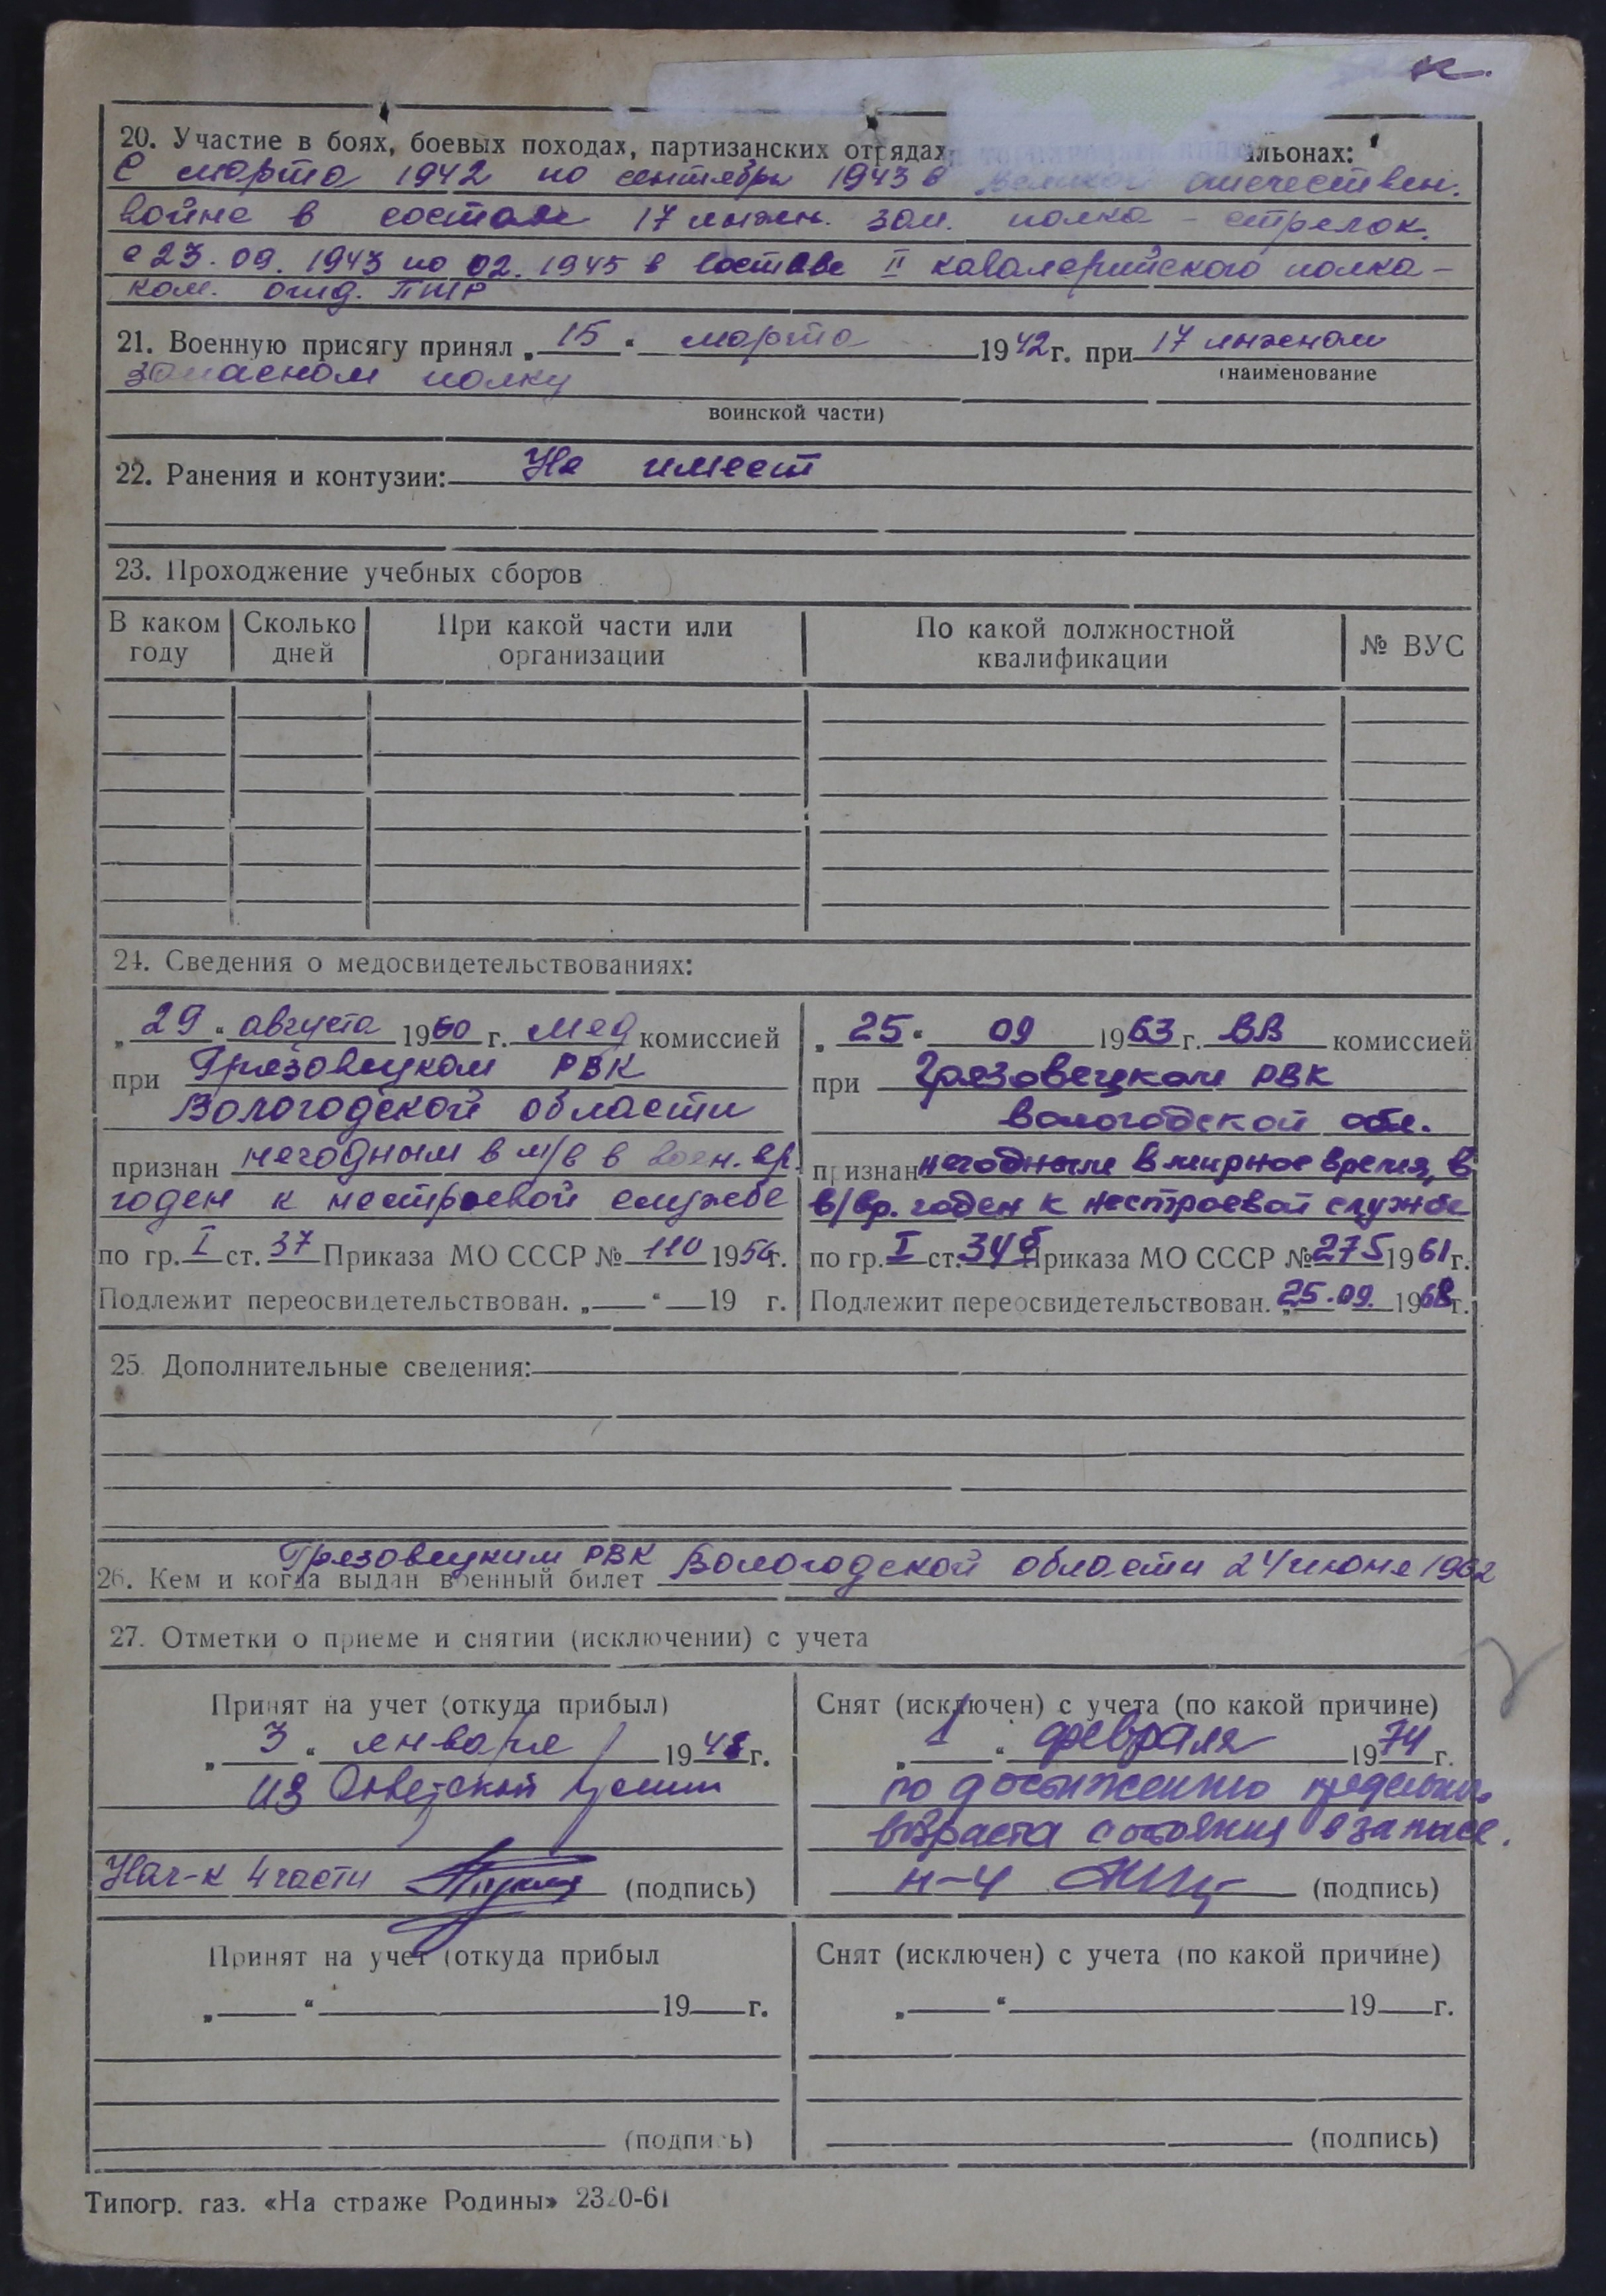 к.
20. Участие в боях, боевых походах, партизанских отрядах альонах:
С марта 1942 по сентябрь 1943 в Великой отечествен.
войне в составе 17 инжен. зап. полка - стрелок.
с 23.09.1943 по 02.1945 в составе II кавалерийского полка -
ком. отд. ПТР
21. Военную присягу принял „ 15 “ марта 1942 г. при 17 инженом
запасном полку (наименование
воинской части)
22. Ранения и контузии: Не имеет
23. Проходжение учебных сборов
В каком году | Сколько дней | При какой части или организации | По какой должностной квалификации | № ВУС
24. Сведения о медосвидетельствованиях:
„ 29 “ августа 1960 г. мед комиссией
при Грязовецком РВК
Вологодской области
признан негодным в м/в в воен. вр.
годен к нестроевой службе
по гр. I ст. 37 Приказа МО СССР № 110 1956 г.
Подлежит переосвидетельствован. „ “ 19 г.
„ 25 “ 09 1963 г. ВВ комиссией
при Грязовецком РВК
Вологодской обл.
признан негодным в мирное время, в
в/вр. годен к нестроевой службе
по гр. I ст. 34б Приказа МО СССР № 275 1961 г.
Подлежит переосвидетельствован. „ 25.09. 1968 г.
25. Дополнительные сведения:
Грязовецким РВК Вологодской области 24 июня 1962
26. Кем и когда выдан военный билет
27. Отметки о приеме и снятии (исключении) с учета
Принят на учет (откуда прибыл)
„ 3 “ января 194 г.
из Советской Армии
Нач-к 4 части (подпись)
Снят (исключен) с учета (по какой причине)
„ 1 “ февраля 1974 г.
по достижению предельн.
возраста состояния в запасе.
н-ч (подпись)
Принят на учет (откуда прибыл
„ “ 19 г.
(подпись)
Снят (исключен) с учета (по какой причине)
„ “ 19 г.
(подпись)
Типогр. газ. «На страже Родины» 2320-61